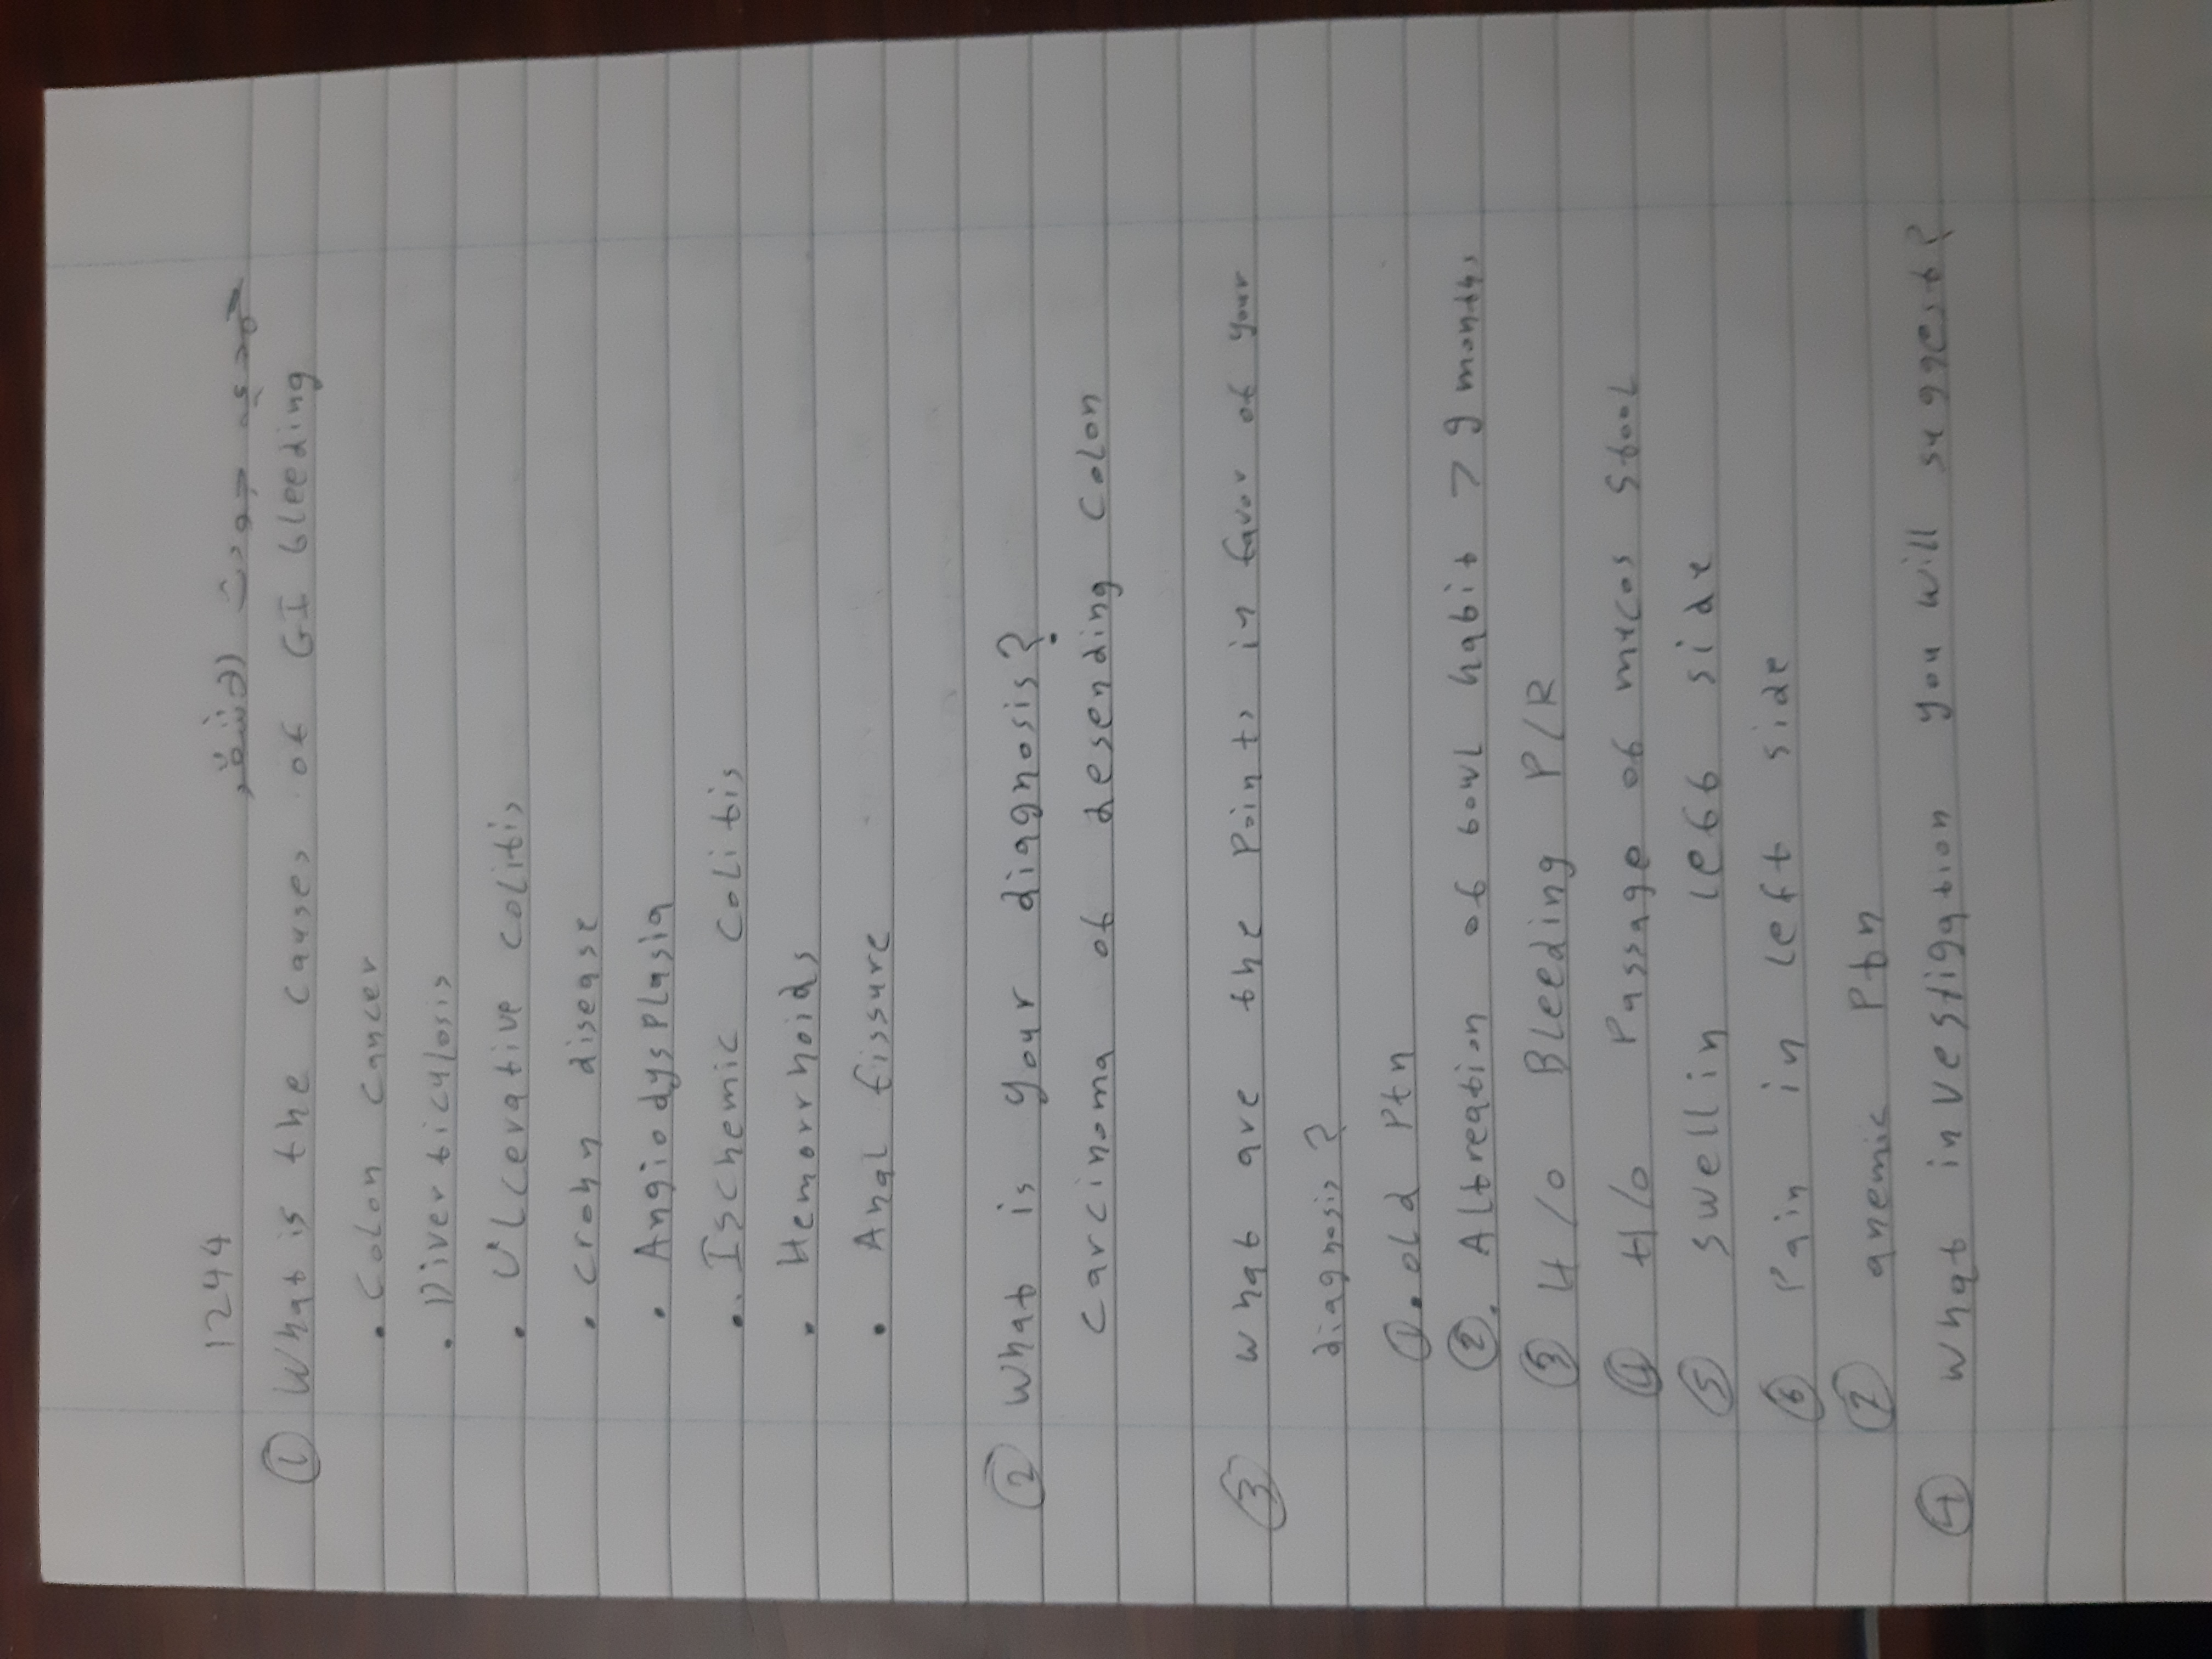 1244
① What is the causes of GI bleeding
• Colon cancer
• Diverticulosis
• Ulcerative colitis
• crohn disease
• Angiodysplasia
• Ischemic colitis
• Hemorrhoids
• Anal fissure
② What is your diagnosis?
carcinoma of desending colon
③ what are the points in favor of your
diagnosis?
① • old Ptn
② • Altreation of bowl habit > 9 months
③ H/o Bleeding P/R
④ H/o Passage of mucos stool
⑤ swellin left side
⑥ Pain in left side
⑦ anemic Ptn
④ what investigation you will suggest?